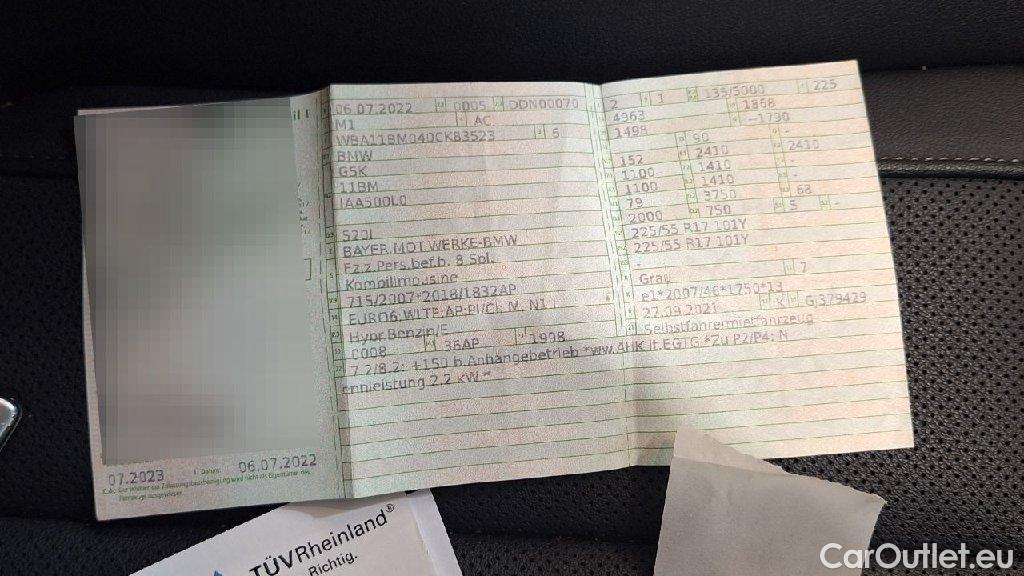 06.07.2022 0005 DDN00070
M1 AC
WBA11BM040CK83523 6
BMW
G5K
11BM
IAA500L0
520I
BAYER.MOT.WERKE-BMW
Fz.z.Pers.bef.b. 8 Spl.
Kombilimousine
715/2007*2018/1832AP
EURO6
Hybr.Benzin/E
0008 36AP 1998
7.2/8.2: +150 b.Anhängebetrieb *ww.AHK lt.EGTG *Zu P2/P4: N
ennleistung 2.2 kW *
2 3 135/5000 225
4963 1868
1498 -1730
90
152 2410 2410
1100 1410
1100 1410
79 3750 68
2000 750 5 -
225/55 R17 101Y
225/55 R17 101Y
-
Grau 7
e1*2007/46*1750*13
27.09.2021 K GJ379429
Selbstfahrermietfahrzeug
07.2023 Datum: 06.07.2022
TÜVRheinland®
Richtig.
CarOutlet.eu